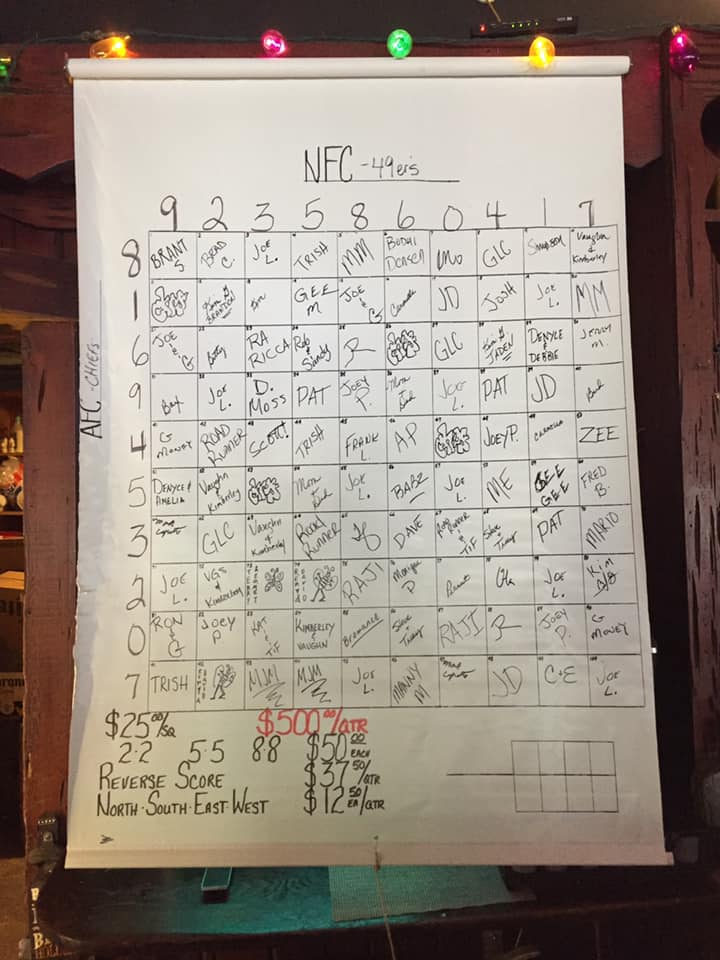 NFC - 49ers
9 2 3 5 8 6 0 4 1 7
AFC - CHIEFS
8 BRANT S BRAD C. JOE L. TRISH MM BODHI DENSEN Mo GLC Simpson Vaughn & Kimberley
1 GEE M JOE & G JD JOSH JOE L. MM
6 JOE & G Betty RA RICCA Rob & Sandy R GLC JADEN DENYCE & DEBBIE JENNY M.
9 JOE L. D. MOSS PAT JOEY P. Mom & Dad JOE L. PAT JD
4 G MONEY ROAD RUNNER SCOTT! TRISH FRANK L. AP JOEY P. CARMELLA ZEE
5 DENYCE & AMELIA Vaughn & Kimberley Mom & Dad JOE L. BABZ JOE L. ME GEE GEE FRED B.
3 GLC Vaughn & Kimberley ROAD RUNNER DAVE ROAD RUNNER & TIF Steve & Tracy PAT MARIO
2 JOE L. VGS & Kimberley RAJI Monique P JOE L. Kim
0 RON & G JOEY P KAT & TIF KIMBERLEY & VAUGHN Bromance Steve & Tracy RAJI R JOEY P. G MONEY
7 TRISH MJM MJM JOE L. MANNY M JD C·E JOE L.
$25 00/SQ $500 00/QTR
2·2 5·5 8·8 $50 00 EACH
REVERSE SCORE $37 50/QTR
NORTH·SOUTH·EAST·WEST $12 50 EA/QTR